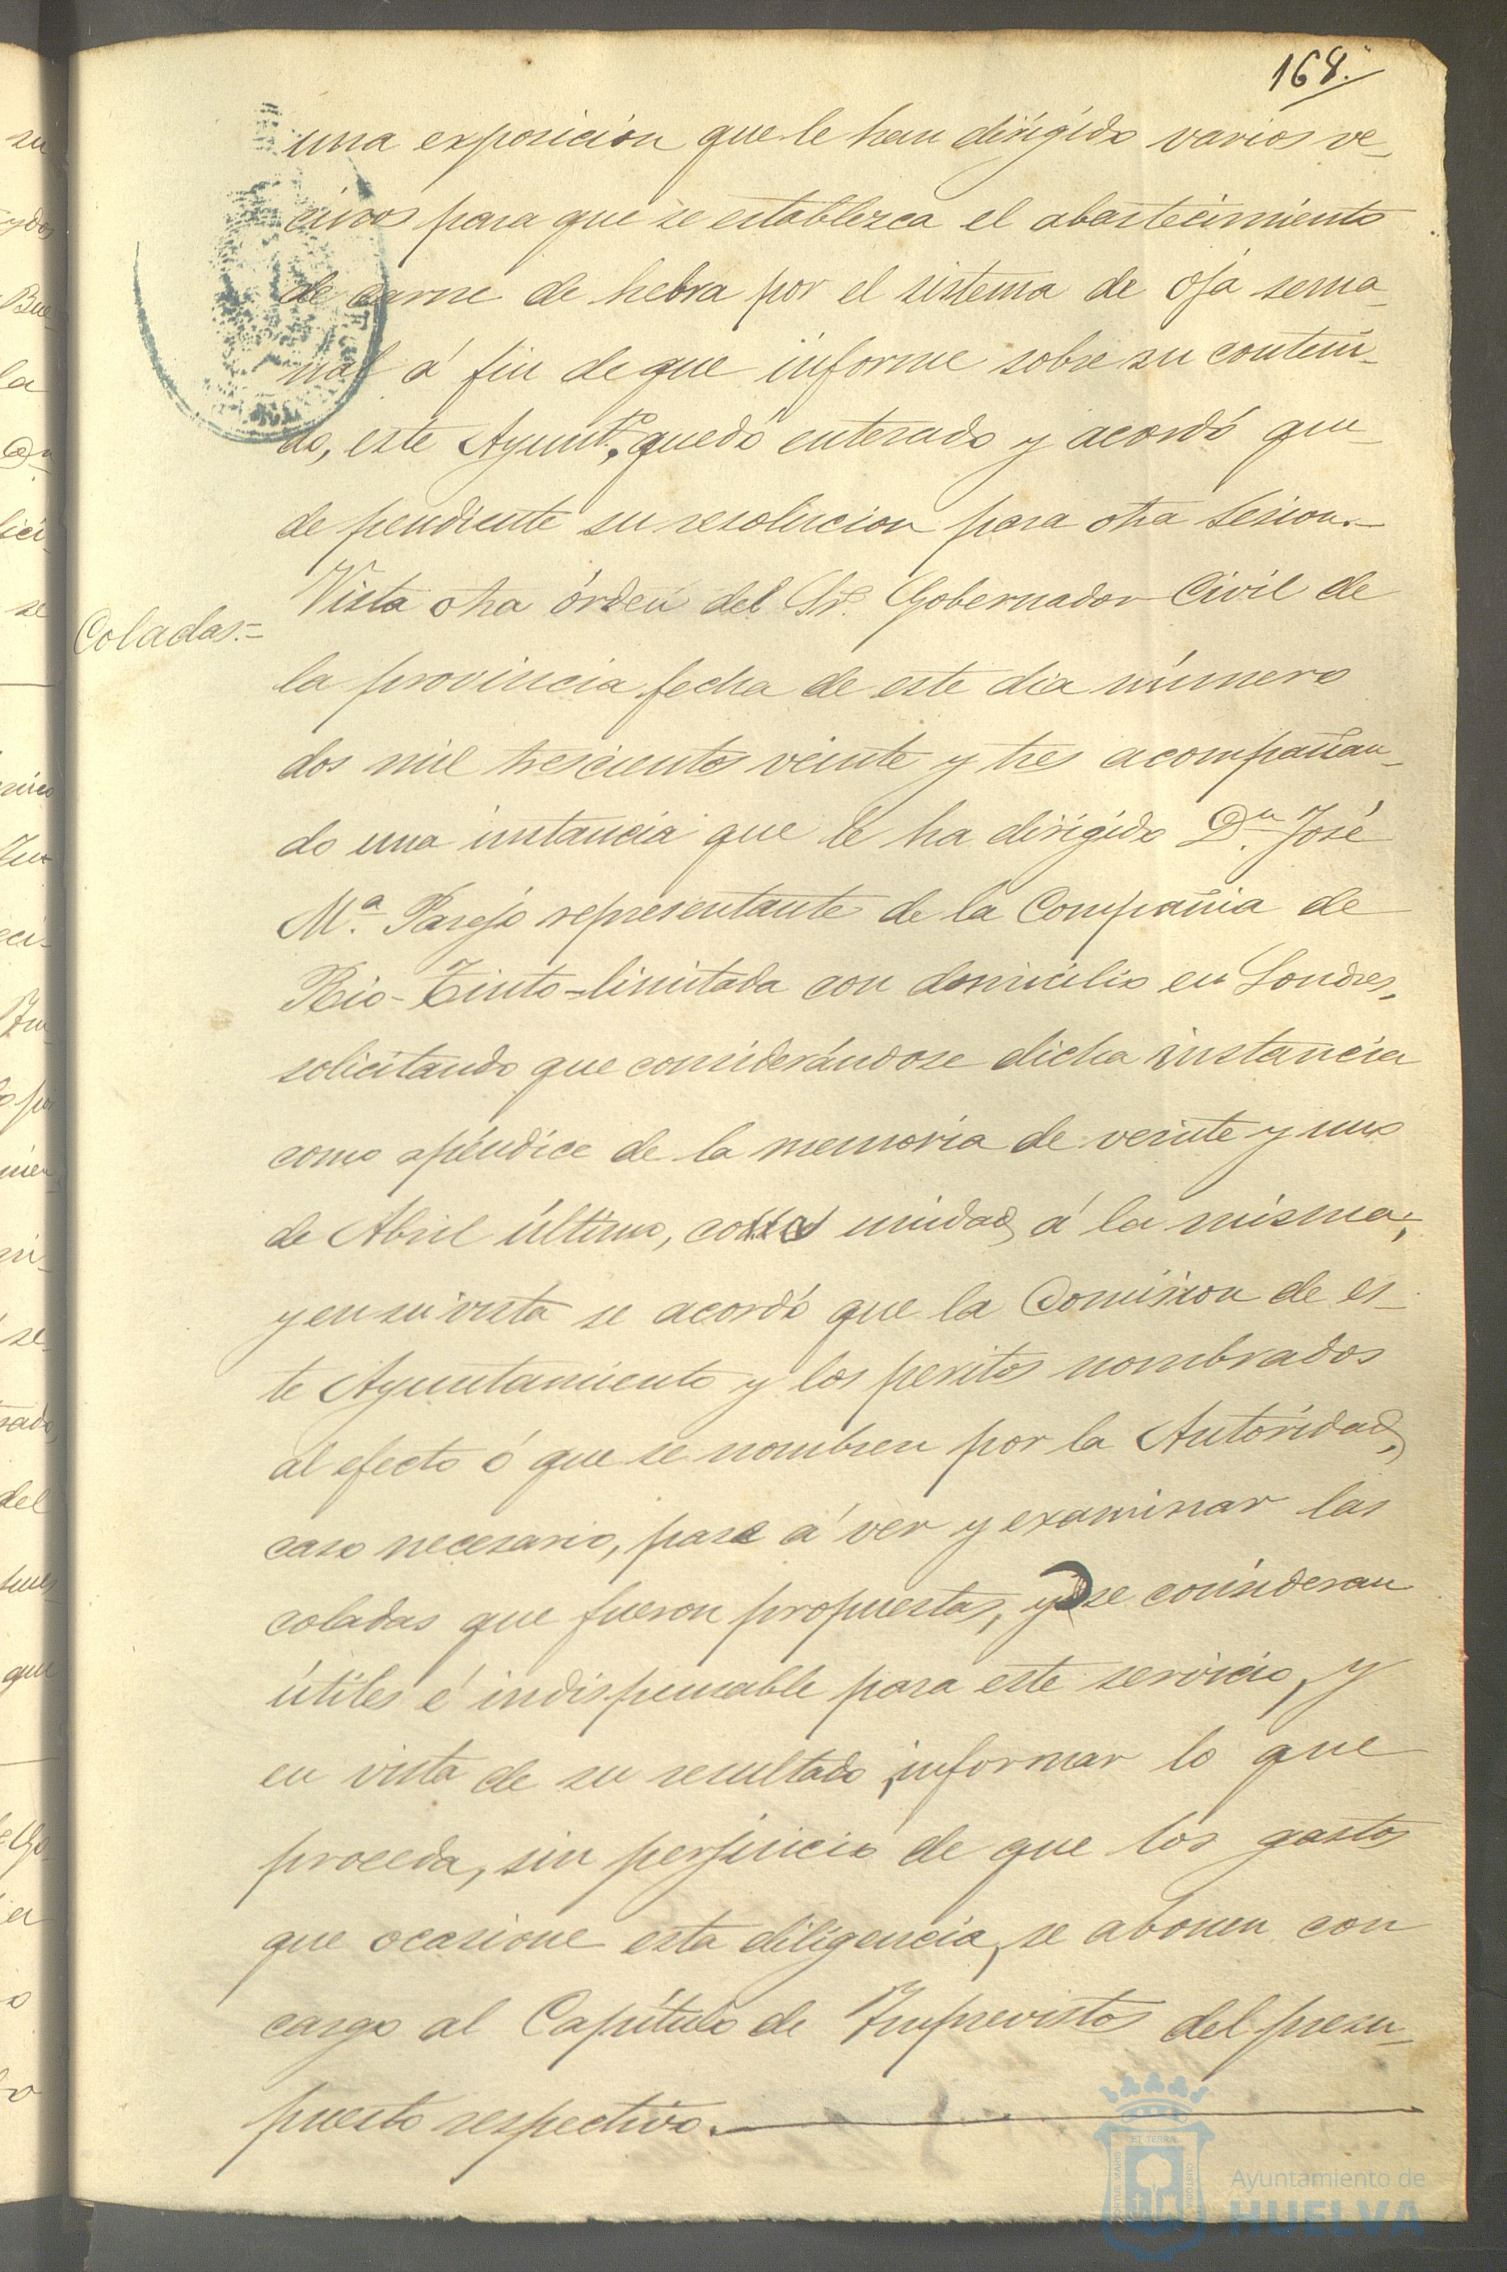 168.
una exposicion que le han dirigido varios ve-
cinos para que se establezca el abastecimiento
de carne de hebra por el sistema de oja sema-
nal á fin de que informe sobre su conteni-
do, este Ayunt.º quedó enterado y acordó que-
de pendiente su resolucion para otra sesion.-
Coladas.=
Vista otra órden del Sr. Gobernador Civil de
la provincia fecha de este dia número
dos mil trescientos veinte y tres acompañan-
do una instancia que le ha dirigido D.n José
M.a Parejo representante de la Compañia de
Rio-Tinto-limitada con domicilio en Londres,
solicitando que considerándose dicha instancia
como apéndice de la memoria de veinte y uno
de Abril último, corra unida á la misma;
y en su vista se acordó que la Comision de es-
te Ayuntamiento y los peritos nombrados
al efecto ó que se nombren por la Autoridad,
caso necesario, pase á ver y examinar las
coladas que fueron propuestas, y se consideran
útiles é indispensable para este servicio, y
en vista de su resultado, informar lo que
proceda, sin perjuicio de que los gastos
que ocasione esta diligencia, se abonen con
cargo al Capítulo de Imprevistos del presu-
puesto respectivo.
Ayuntamiento de
HUELVA